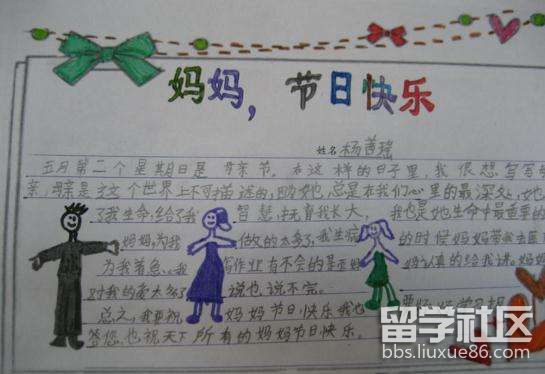 妈妈，节日快乐
姓名 杨茜瑶
五月第二个星期日是母亲节。在这样的日子里，我很想写写母
亲，母亲是这个世界上不可描述的，因为她总是在我们心里的最深处，她
了我生命，给了我智慧，抚育我长大，我也是她生命中最重要的
妈妈，为我做的太多了，我生病的时候妈妈带我去医
为我着急，我写作业有不会的是妈妈认真的给我讲。妈妈
对我的爱太多了说也说不完。
总之，我要祝妈妈节日快乐我也要好好学习报
答您，也祝天下所有的妈妈节日快乐。
留学社区
bbs.liuxue86.com